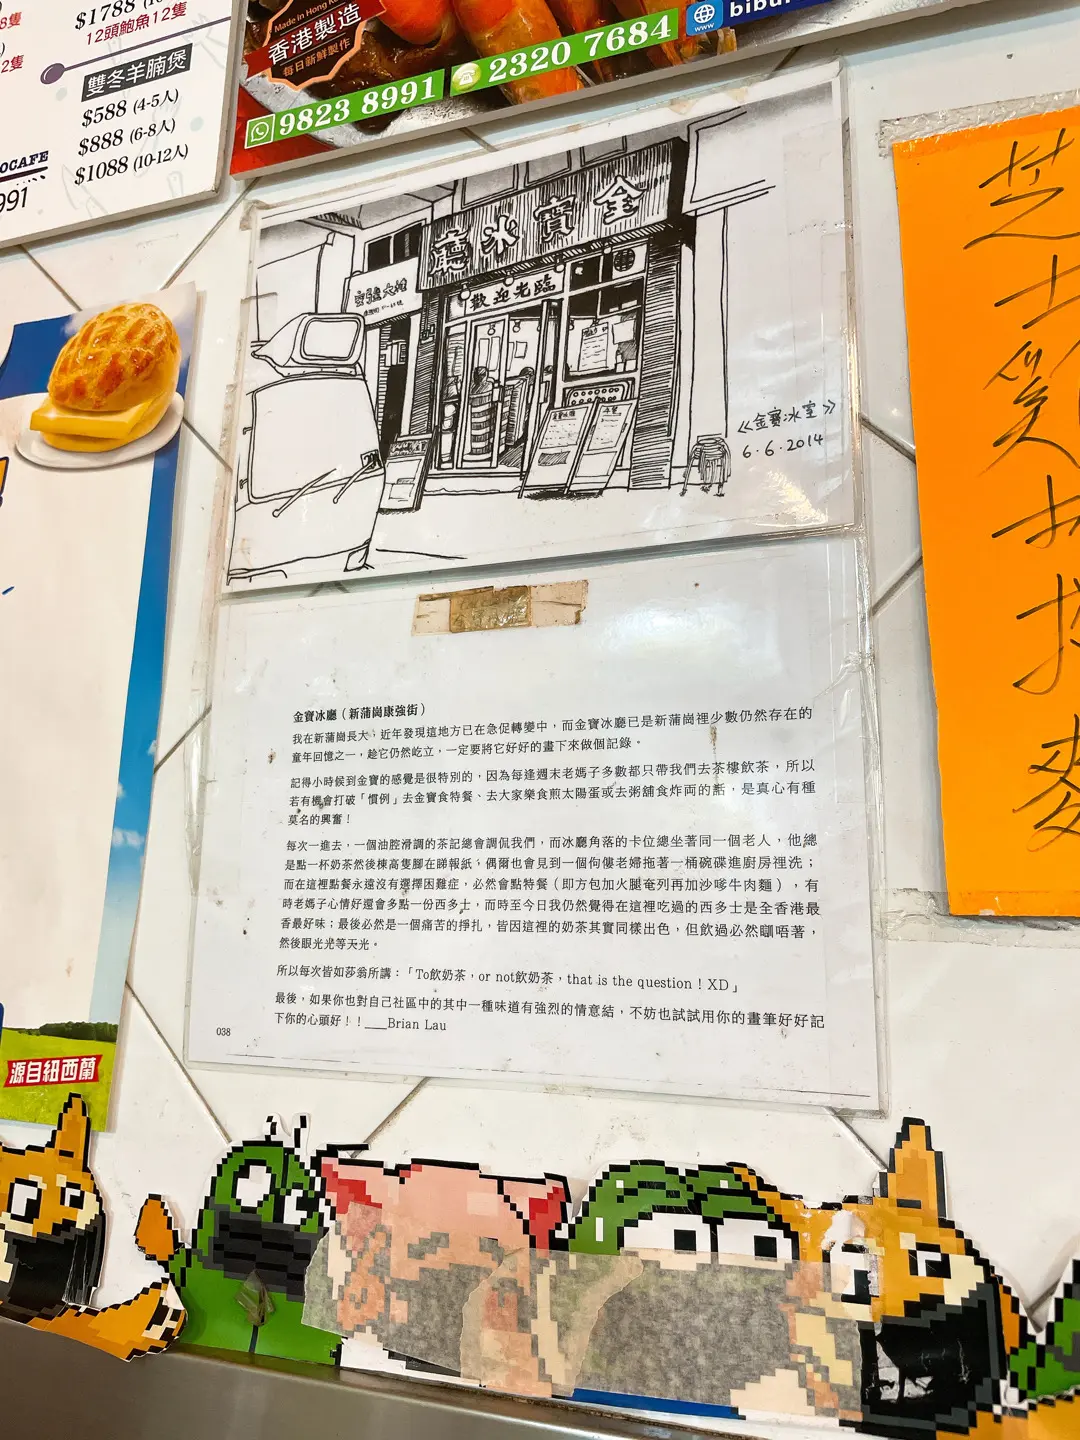 $1788
12頭鮑魚12隻
雙冬羊腩煲
$588 (4-5人)
$888 (6-8人)
$1088 (10-12人)
OCAFE
991
Made in Hong Kong
香港製造
每日新鮮製作
9823 8991
2320 7684
www
金寶冰廳
歡迎光臨
《金寶冰室》
6.6.2014
芝士
源自紐西蘭
金寶冰廳（新蒲崗康強街）
我在新蒲崗長大，近年發現這地方已在急促轉變中，而金寶冰廳已是新蒲崗裡少數仍然存在的
童年回憶之一，趁它仍然屹立，一定要將它好好的畫下來做個記錄。
記得小時候到金寶的感覺是很特別的，因為每逢週末老媽子多數都只帶我們去茶樓飲茶，所以
若有機會打破「慣例」去金寶食特餐、去大家樂食煎太陽蛋或去粥舖食炸両的話，是真心有種
莫名的興奮！
每次一進去，一個油腔滑調的茶記總會調侃我們，而冰廳角落的卡位總坐著同一個老人，他總
是點一杯奶茶然後棟高隻腳在睇報紙，偶爾也會見到一個佝僂老婦拖著一桶碗碟進廚房裡洗；
而在這裡點餐永遠沒有選擇困難症，必然會點特餐（即方包加火腿奄列再加沙嗲牛肉麵），有
時老媽子心情好還會多點一份西多士，而時至今日我仍然覺得在這裡吃過的西多士是全香港最
香最好味；最後必然是一個痛苦的掙扎，皆因這裡的奶茶其實同樣出色，但飲過必然瞓唔著，
然後眼光光等天光。
所以每次皆如莎翁所講：「To飲奶茶，or not飲奶茶，that is the question！XD」
最後，如果你也對自己社區中的其中一種味道有強烈的情意結，不妨也試試用你的畫筆好好記
下你的心頭好！！___Brian Lau
038